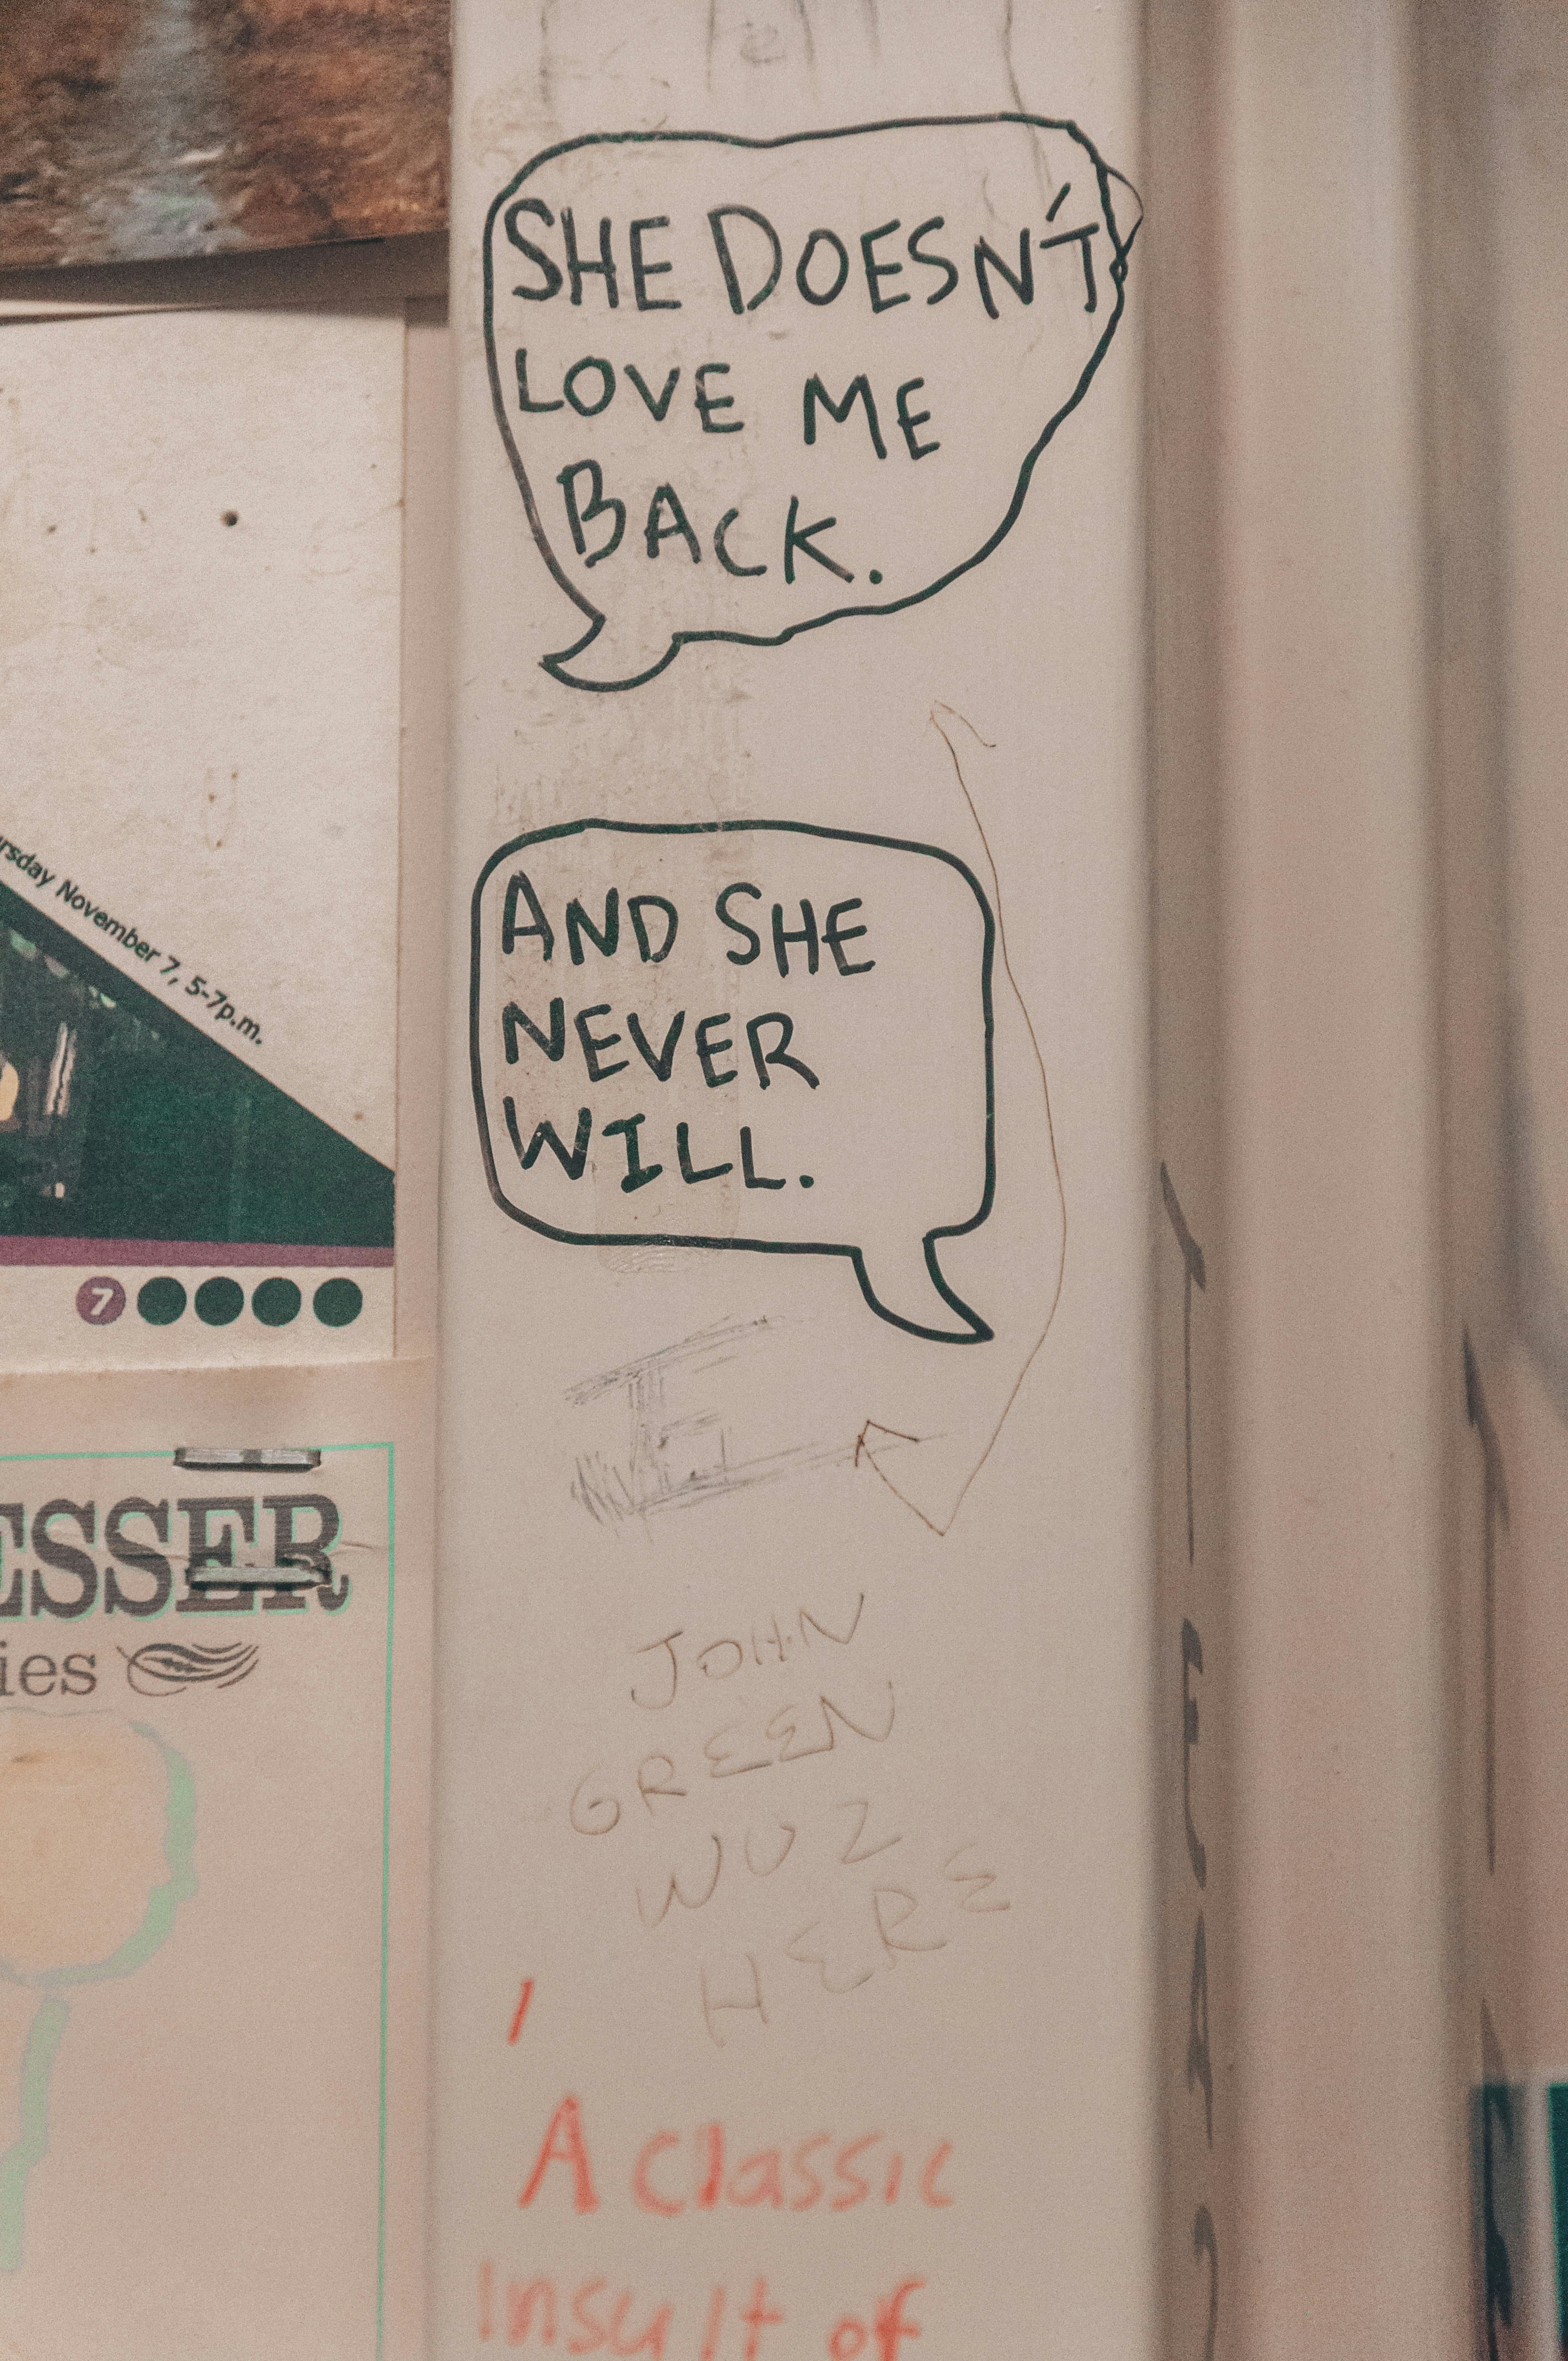 SHE DOESN'T
LOVE ME
BACK.
AND SHE
NEVER
WILL.
JOHN
GREEN
WUZ
HERE
A classic
Insult of
November 7, 5-7p.m.
7